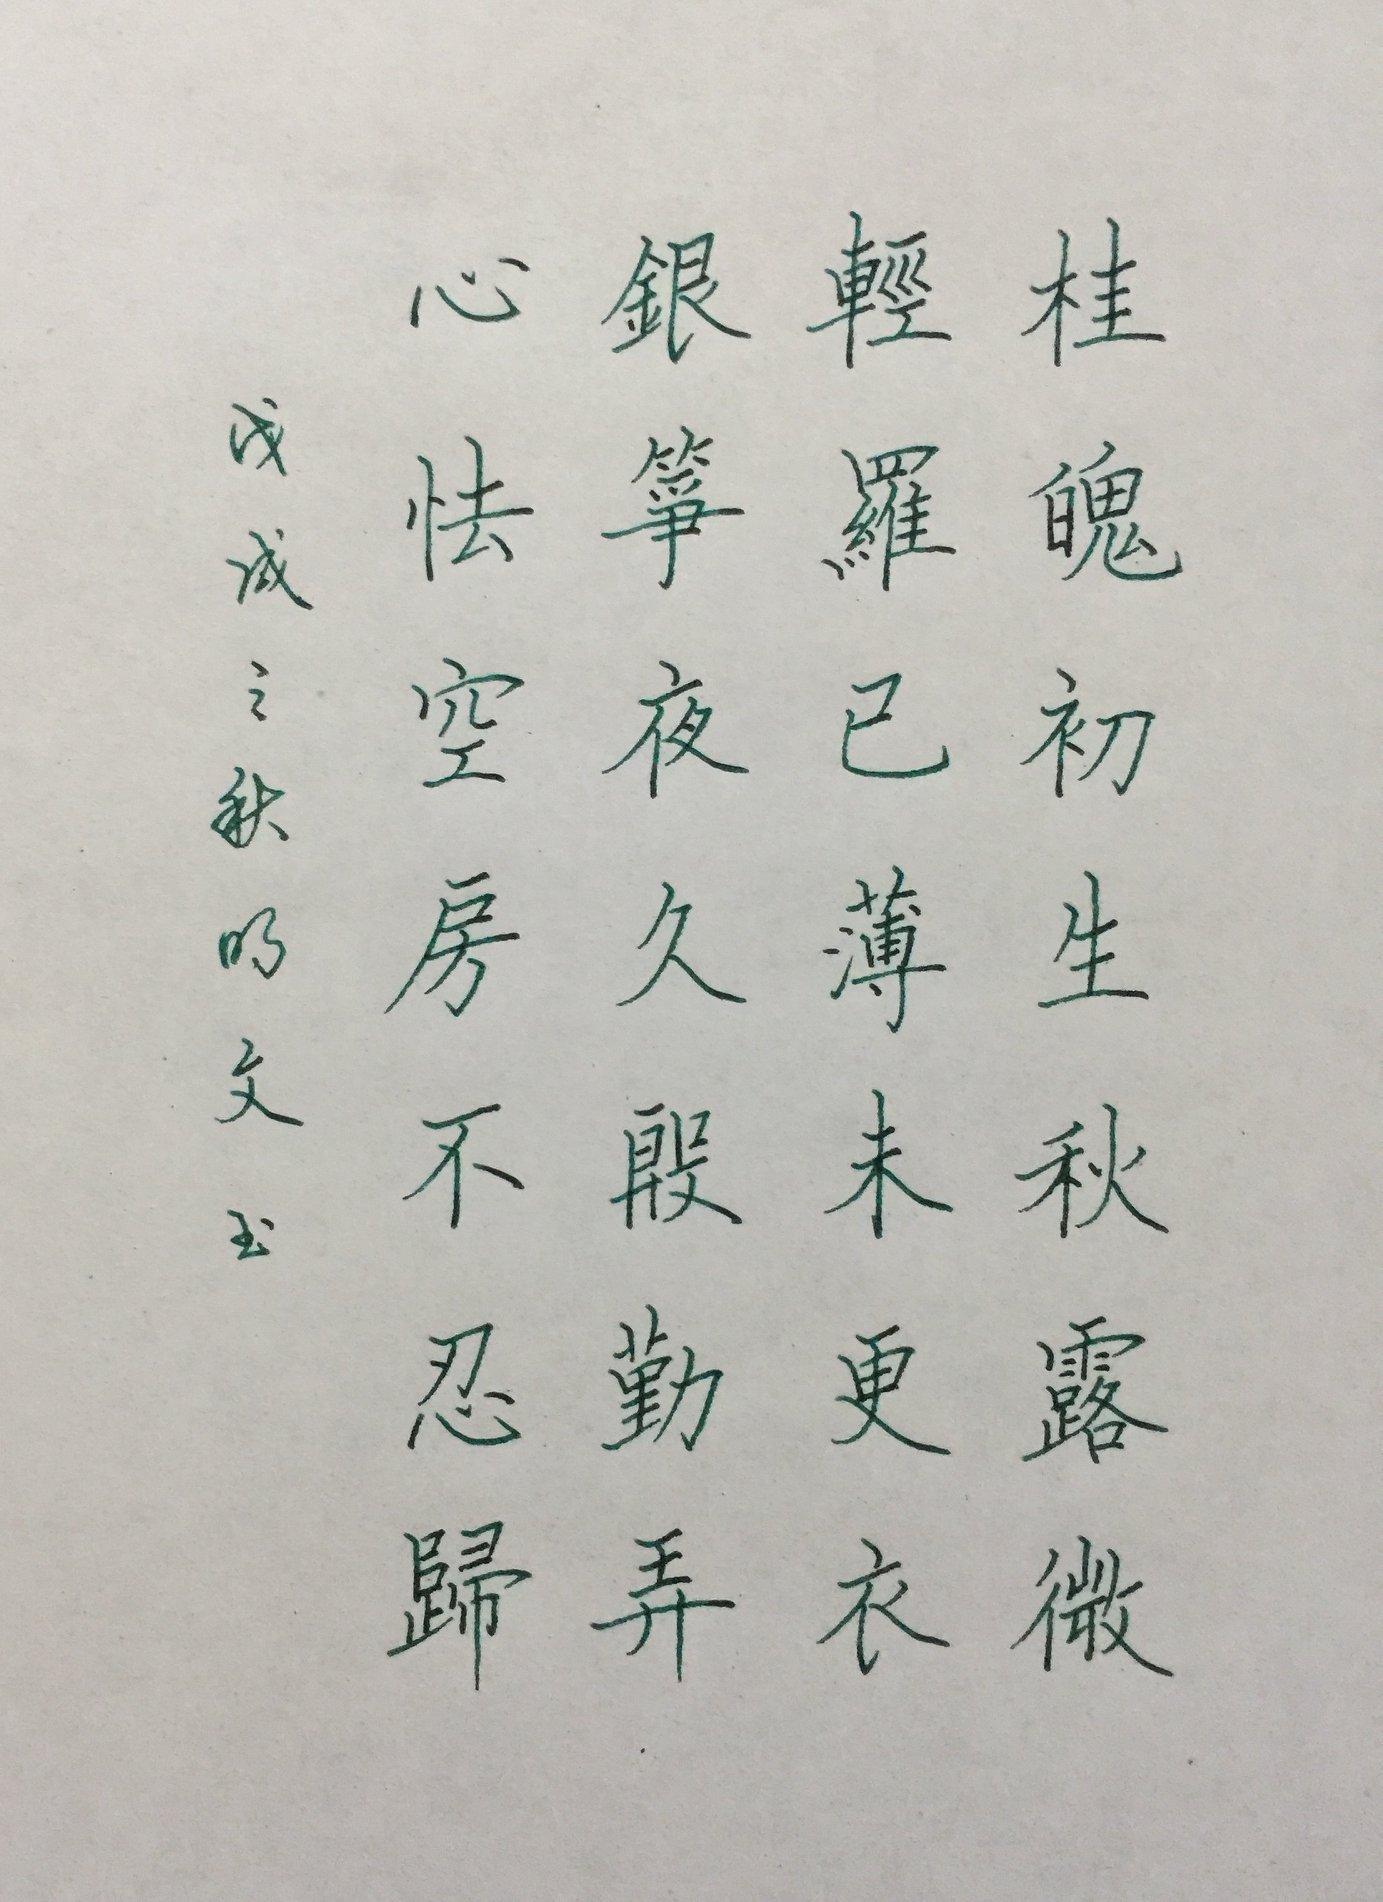 桂魄初生秋露微
輕羅已薄未更衣
銀箏夜久殷勤弄
心怯空房不忍歸
戊戌之秋明文书